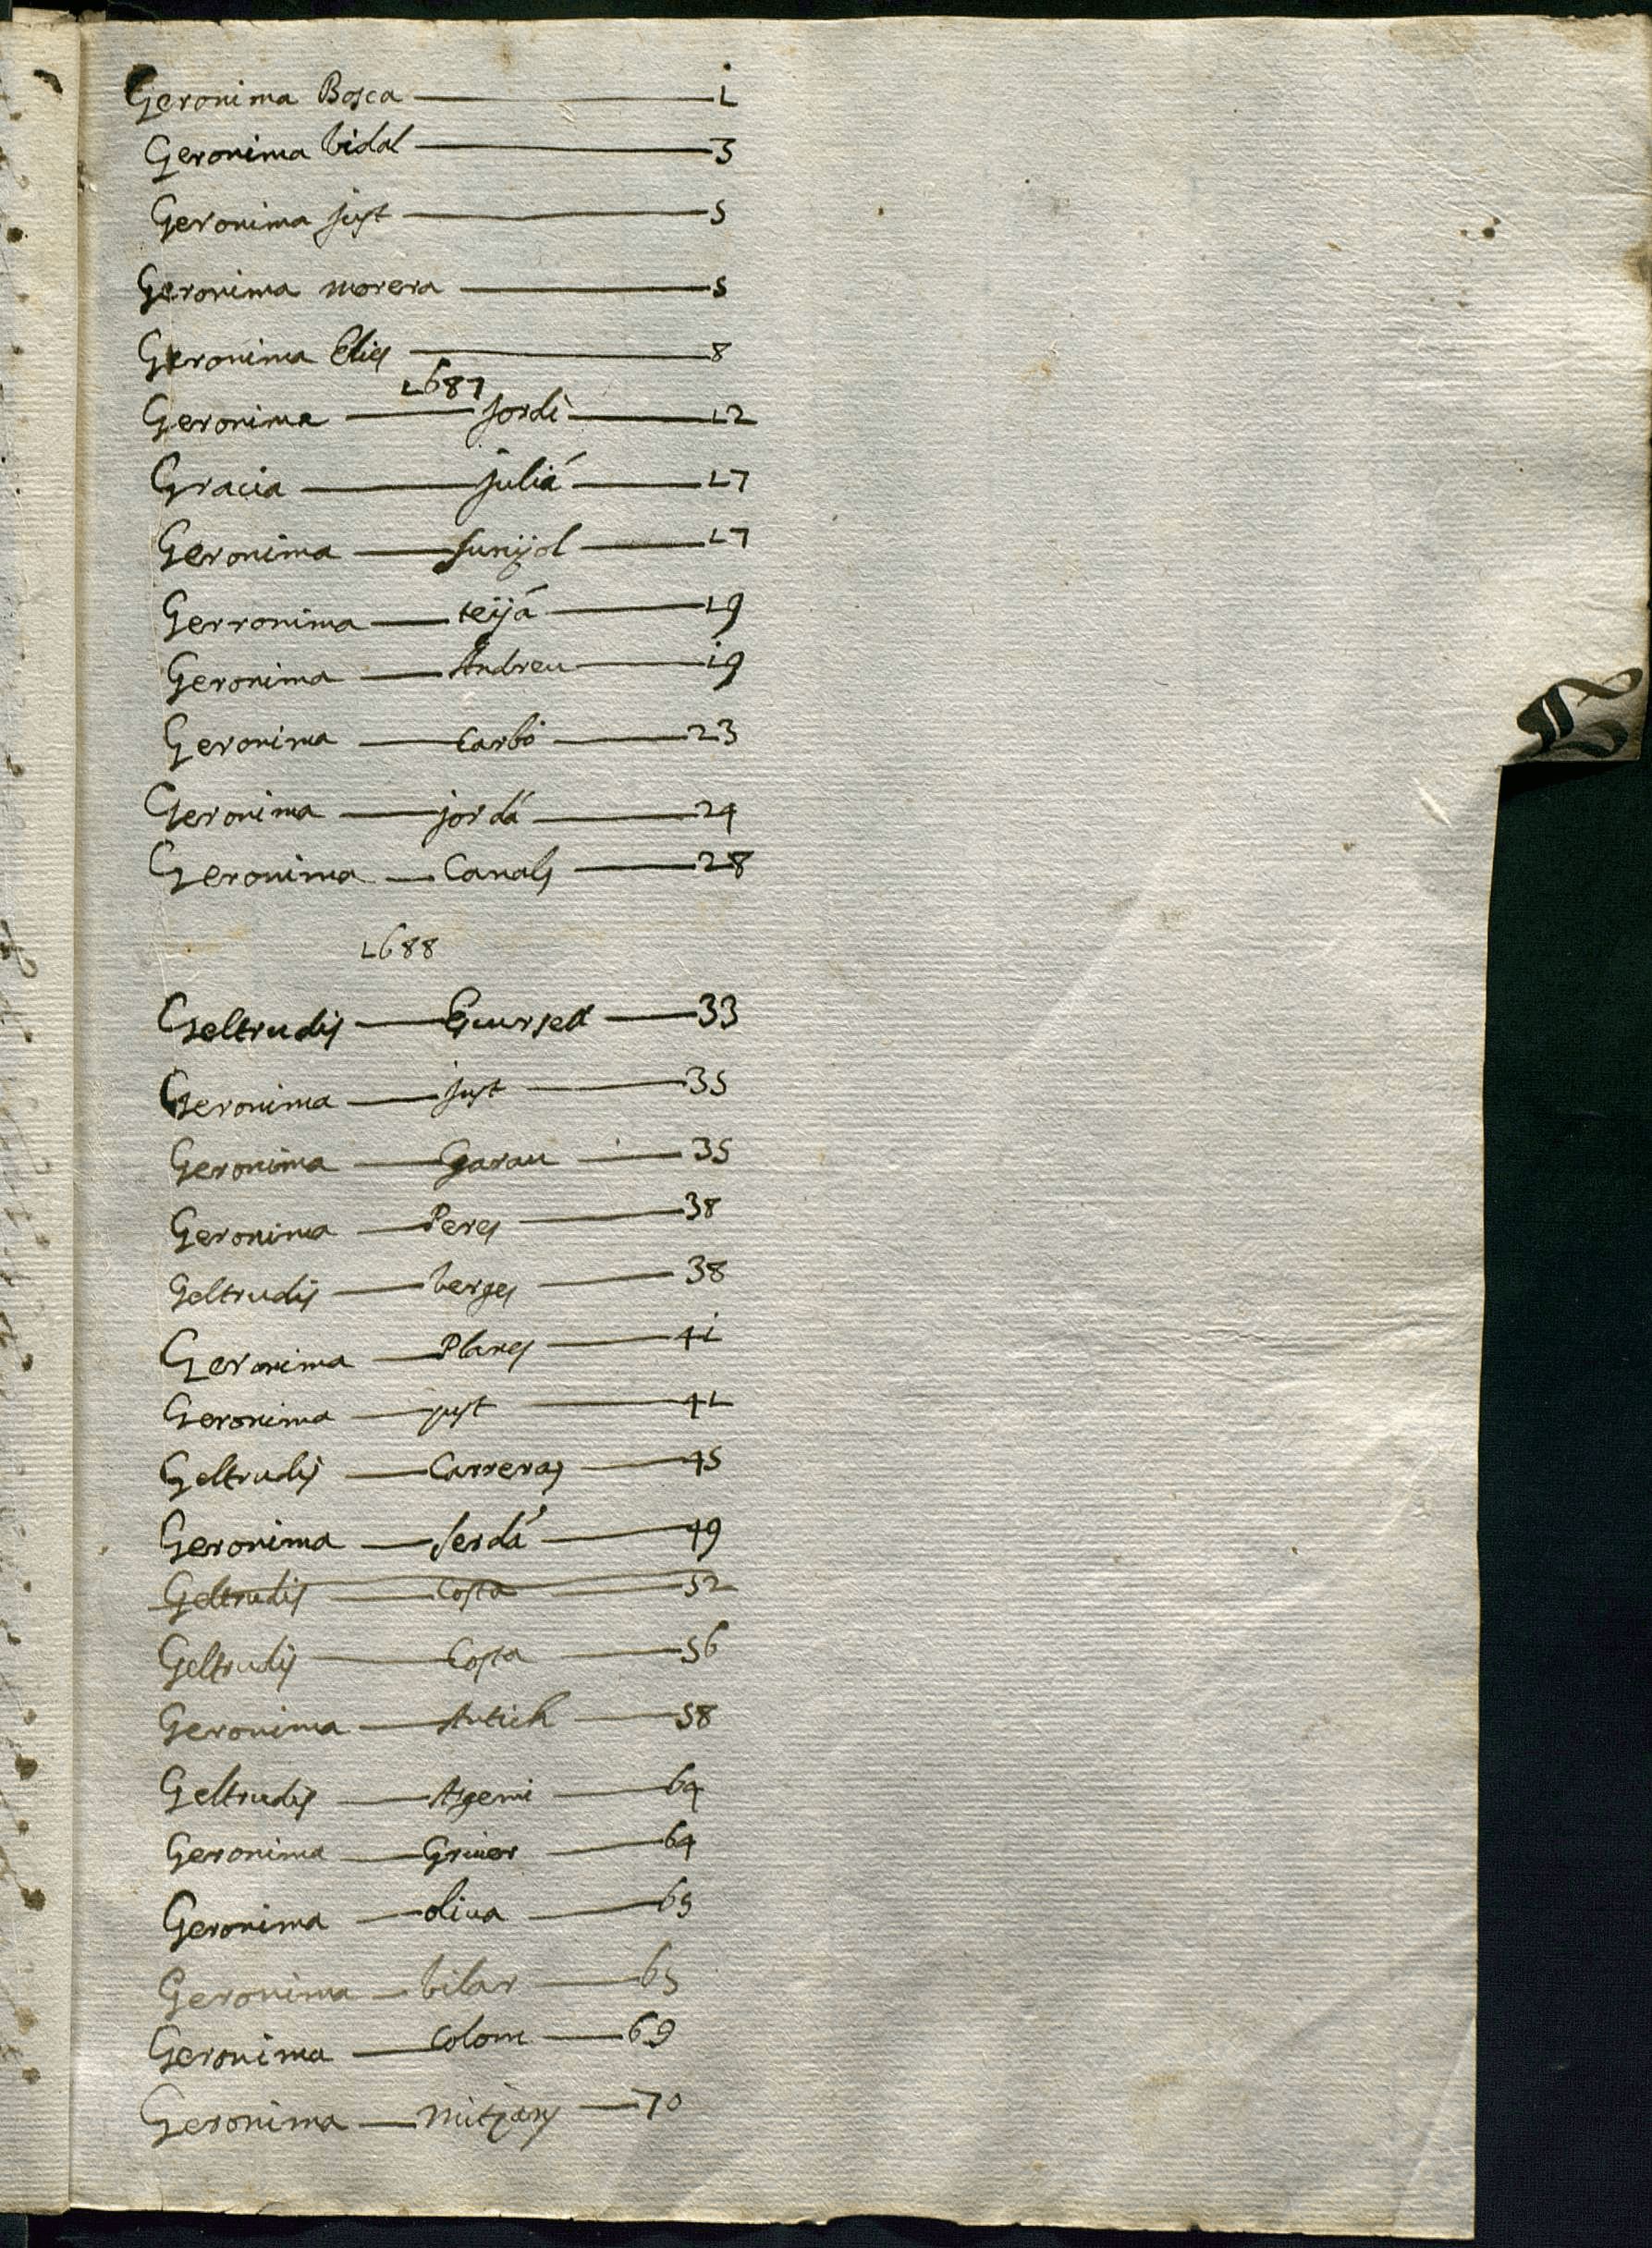 Geronima Bosca — 1
Geronima bidal — 3
Geronima just — 5
Geronima morera — 5
Geronima Elies — 8
1687
Geronima — Jordi — 12
Gracia — juliá — 17
Geronima — Sunyol — 17
Gerronima — teijá — 19
Geronima — Andreu — 19
Geronima — Carbó — 23
Geronima — jordá — 24
Geronima — Canals — 28
1688
Geltrudis — — 33
Geronima — just — 35
Geronima — Garau — 35
Geronima — Peres — 38
Geltrudis — berges — 38
Geronima — Planes — 41
Geronima — just — 41
Geltrudis — Carreras — 45
Geronima — Serdá — 49
Geltrudis — Costa — 52
Geltrudis — Costa — 56
Geronima — Antich — 58
Geltrudis — — 64
Geronima — Griuer — 64
Geronima — oliua — 65
Geronima — bilar — 65
Geronima — Colom — 69
Geronima — mitjans — 70
G